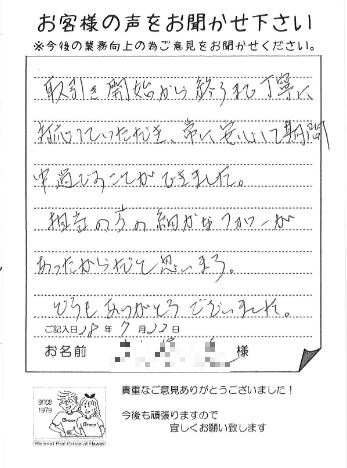 お客様の声をお聞かせ下さい
※今後の業務向上の為ご意見をお聞かせください。
取引き開始から終了まで丁寧に
対応していただき、常に安心して期間
中過ごすことができました。
担当の方の細かなフォローが
あったからだと思います。
どうもありがとうございました。
ご記入日 28年 7月 22日
お名前 様
貴重なご意見ありがとうございました！
今後も頑張りますので
宜しくお願い致します
since
1979